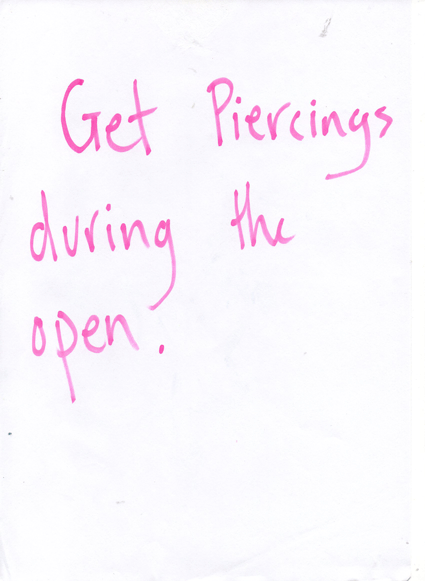 Get Piercings
during the
open.